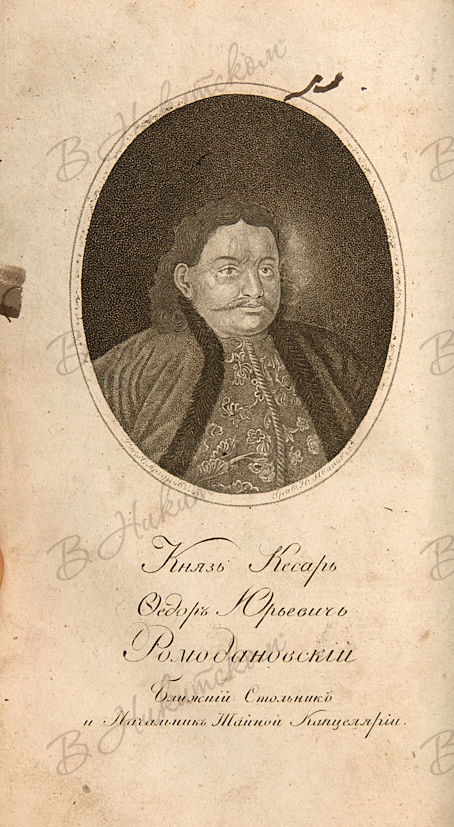 В Никитском
Князь Кесарь
Ѳедоръ Юрьевичь
Ромодановскій
Ближній Стольникъ
и Начальникъ Тайной Канцеляріи.